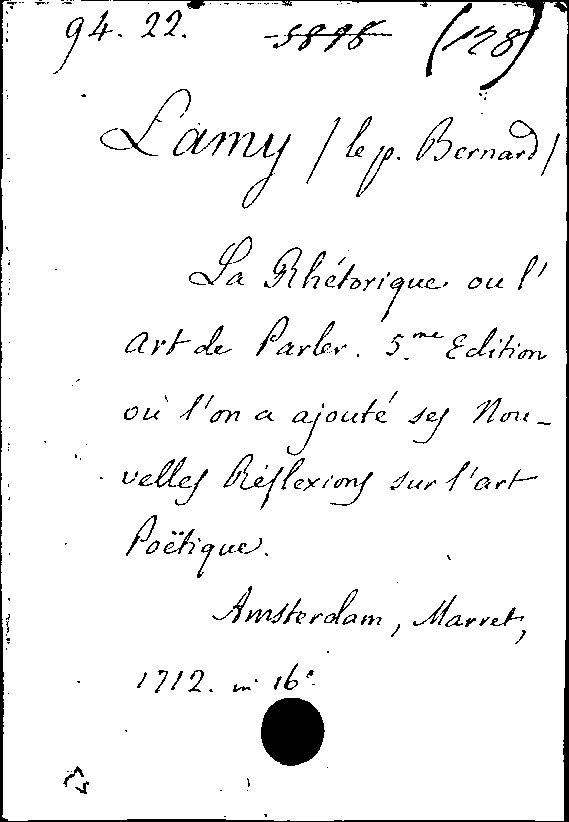 94. 22. 5898 (128)
Lamy / le p. Bernard /
La Rhétorique ou l'
art de Parler. 5.me Edition
où l'on a ajouté ses Nou-
velles Réflexions sur l'art
Poëtique.
Amsterdam, Marret,
1712. in 16°.